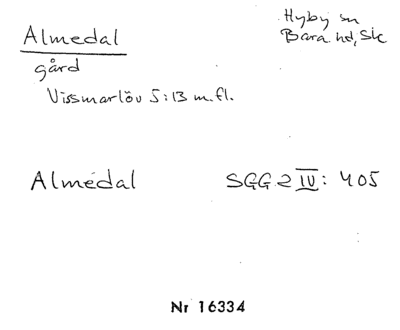 Almedal
Hyby sn
Bara hd, Sk
gård
Vissmarlöv 5:13 m.fl.
Almedal
SGG 2 IV: 405
Nr 16334